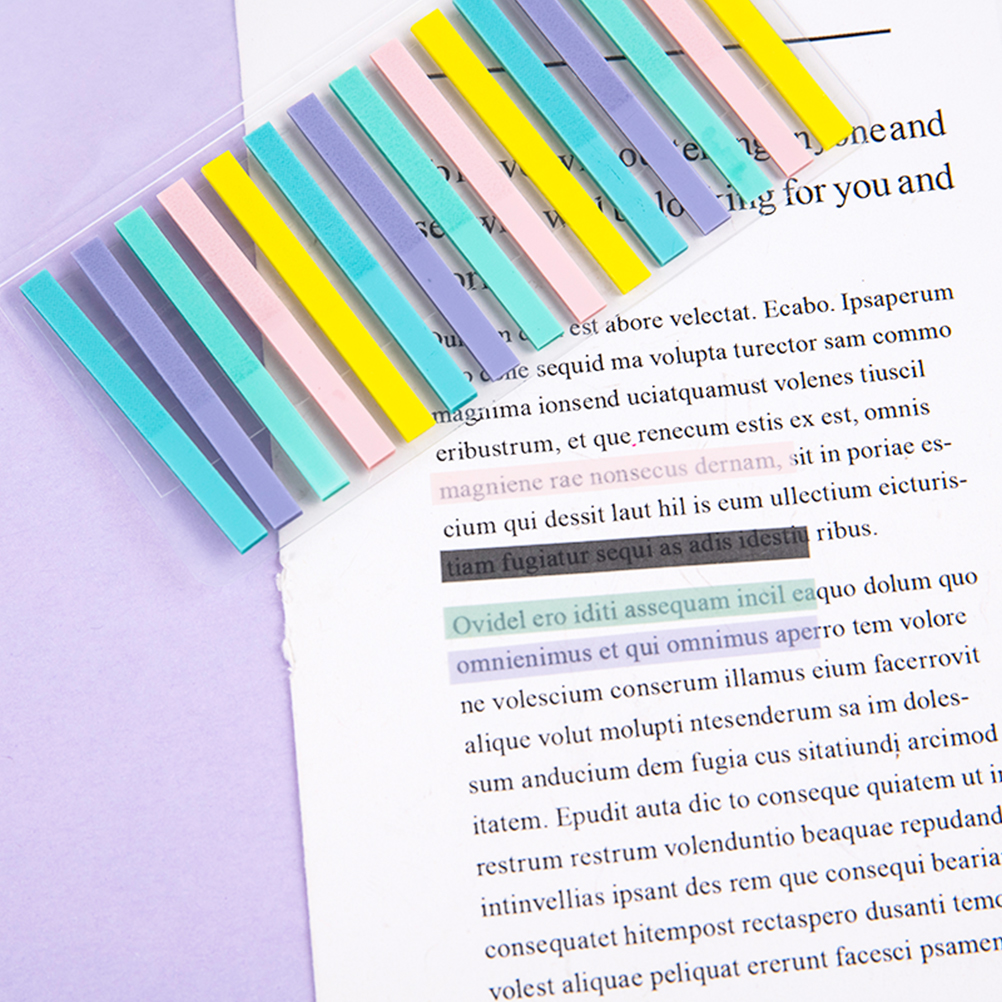 one and
for you and
est abore velectat. Ecabo. Ipsaperum
sequid ma volupta turector sam commo
magnima ionsend uciatquamust volenes tiuscil
eribustrum, et que renecum estis ex est, omnis
magniene rae nonsecus dernam, sit in poriae es-
cium qui dessit laut hil is eum ullectium eicturis-
tiam fugiatur sequi as adis idestiu ribus.
Ovidel ero iditi assequam incil eaquo dolum quo
omnienimus et qui omnimus aperro tem volore
ne volescium conserum illamus eium facerrovit
alique volut molupti ntesenderum sa im doles-
sum anducium dem fugia cus sitatiundi arcimod
itatem. Epudit auta dic to conseque quiatem ut
restrum restrum volenduntio beaquae repudand
intinvellias ipsant des rem que consequi bearia
consequatet hitempost rectaspero dusanti temo
volest aliquae peliquat ererunt facesci psamen